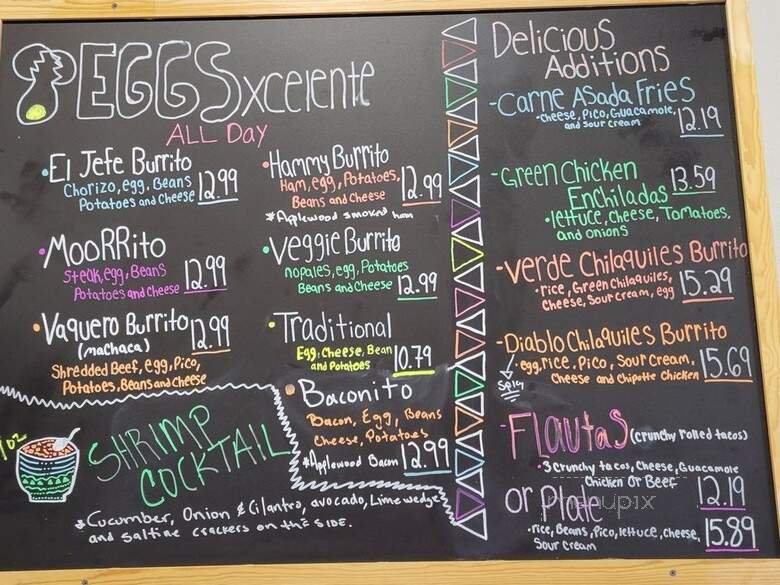 EGGSxcelente
ALL DAY
• El Jefe Burrito
Chorizo, egg, Beans
Potatoes and Cheese 12.99
• Hammy Burrito
Ham, egg, Potatoes,
Beans and Cheese 12.99
* Applewood smoked ham
• MooRRito
Steak, egg, Beans
Potatoes and Cheese 12.99
• Veggie Burrito
nopales, egg, Potatoes
Beans and Cheese 12.99
• Vaquero Burrito 12.99
(machaca)
Shredded Beef, egg, Pico,
Potatoes, Beans and Cheese
• Traditional
Egg, Cheese, Bean
and Potatoes 10.79
• Baconito
Bacon, Egg, Beans
Cheese, Potatoes
* Applewood Bacon 12.99
oz
SHRIMP
COCKTAIL
* Cucumber, Onion & Cilantro, avocado, Lime wedge
and saltine crackers on the side.
Delicious
Additions
- Carne Asada Fries
• Cheese, Pico, Guacamole,
and sour cream 12.19
- Green Chicken
Enchiladas 13.59
• lettuce, Cheese, Tomatoes,
and onions
- Verde Chilaquiles Burrito
• rice, Green Chilaquiles,
Cheese, Sour cream, egg 15.29
- Diablo Chilaquiles Burrito
• egg, rice, Pico, Sour Cream,
Cheese and Chipotle Chicken 15.69
spicy
- Flautas (crunchy rolled tacos)
• 3 Crunchy tacos, Cheese, Guacamole
Chicken Or Beef 12.19
or Plate
• rice, Beans, Pico, lettuce, cheese,
Sour cream 15.89
menupix